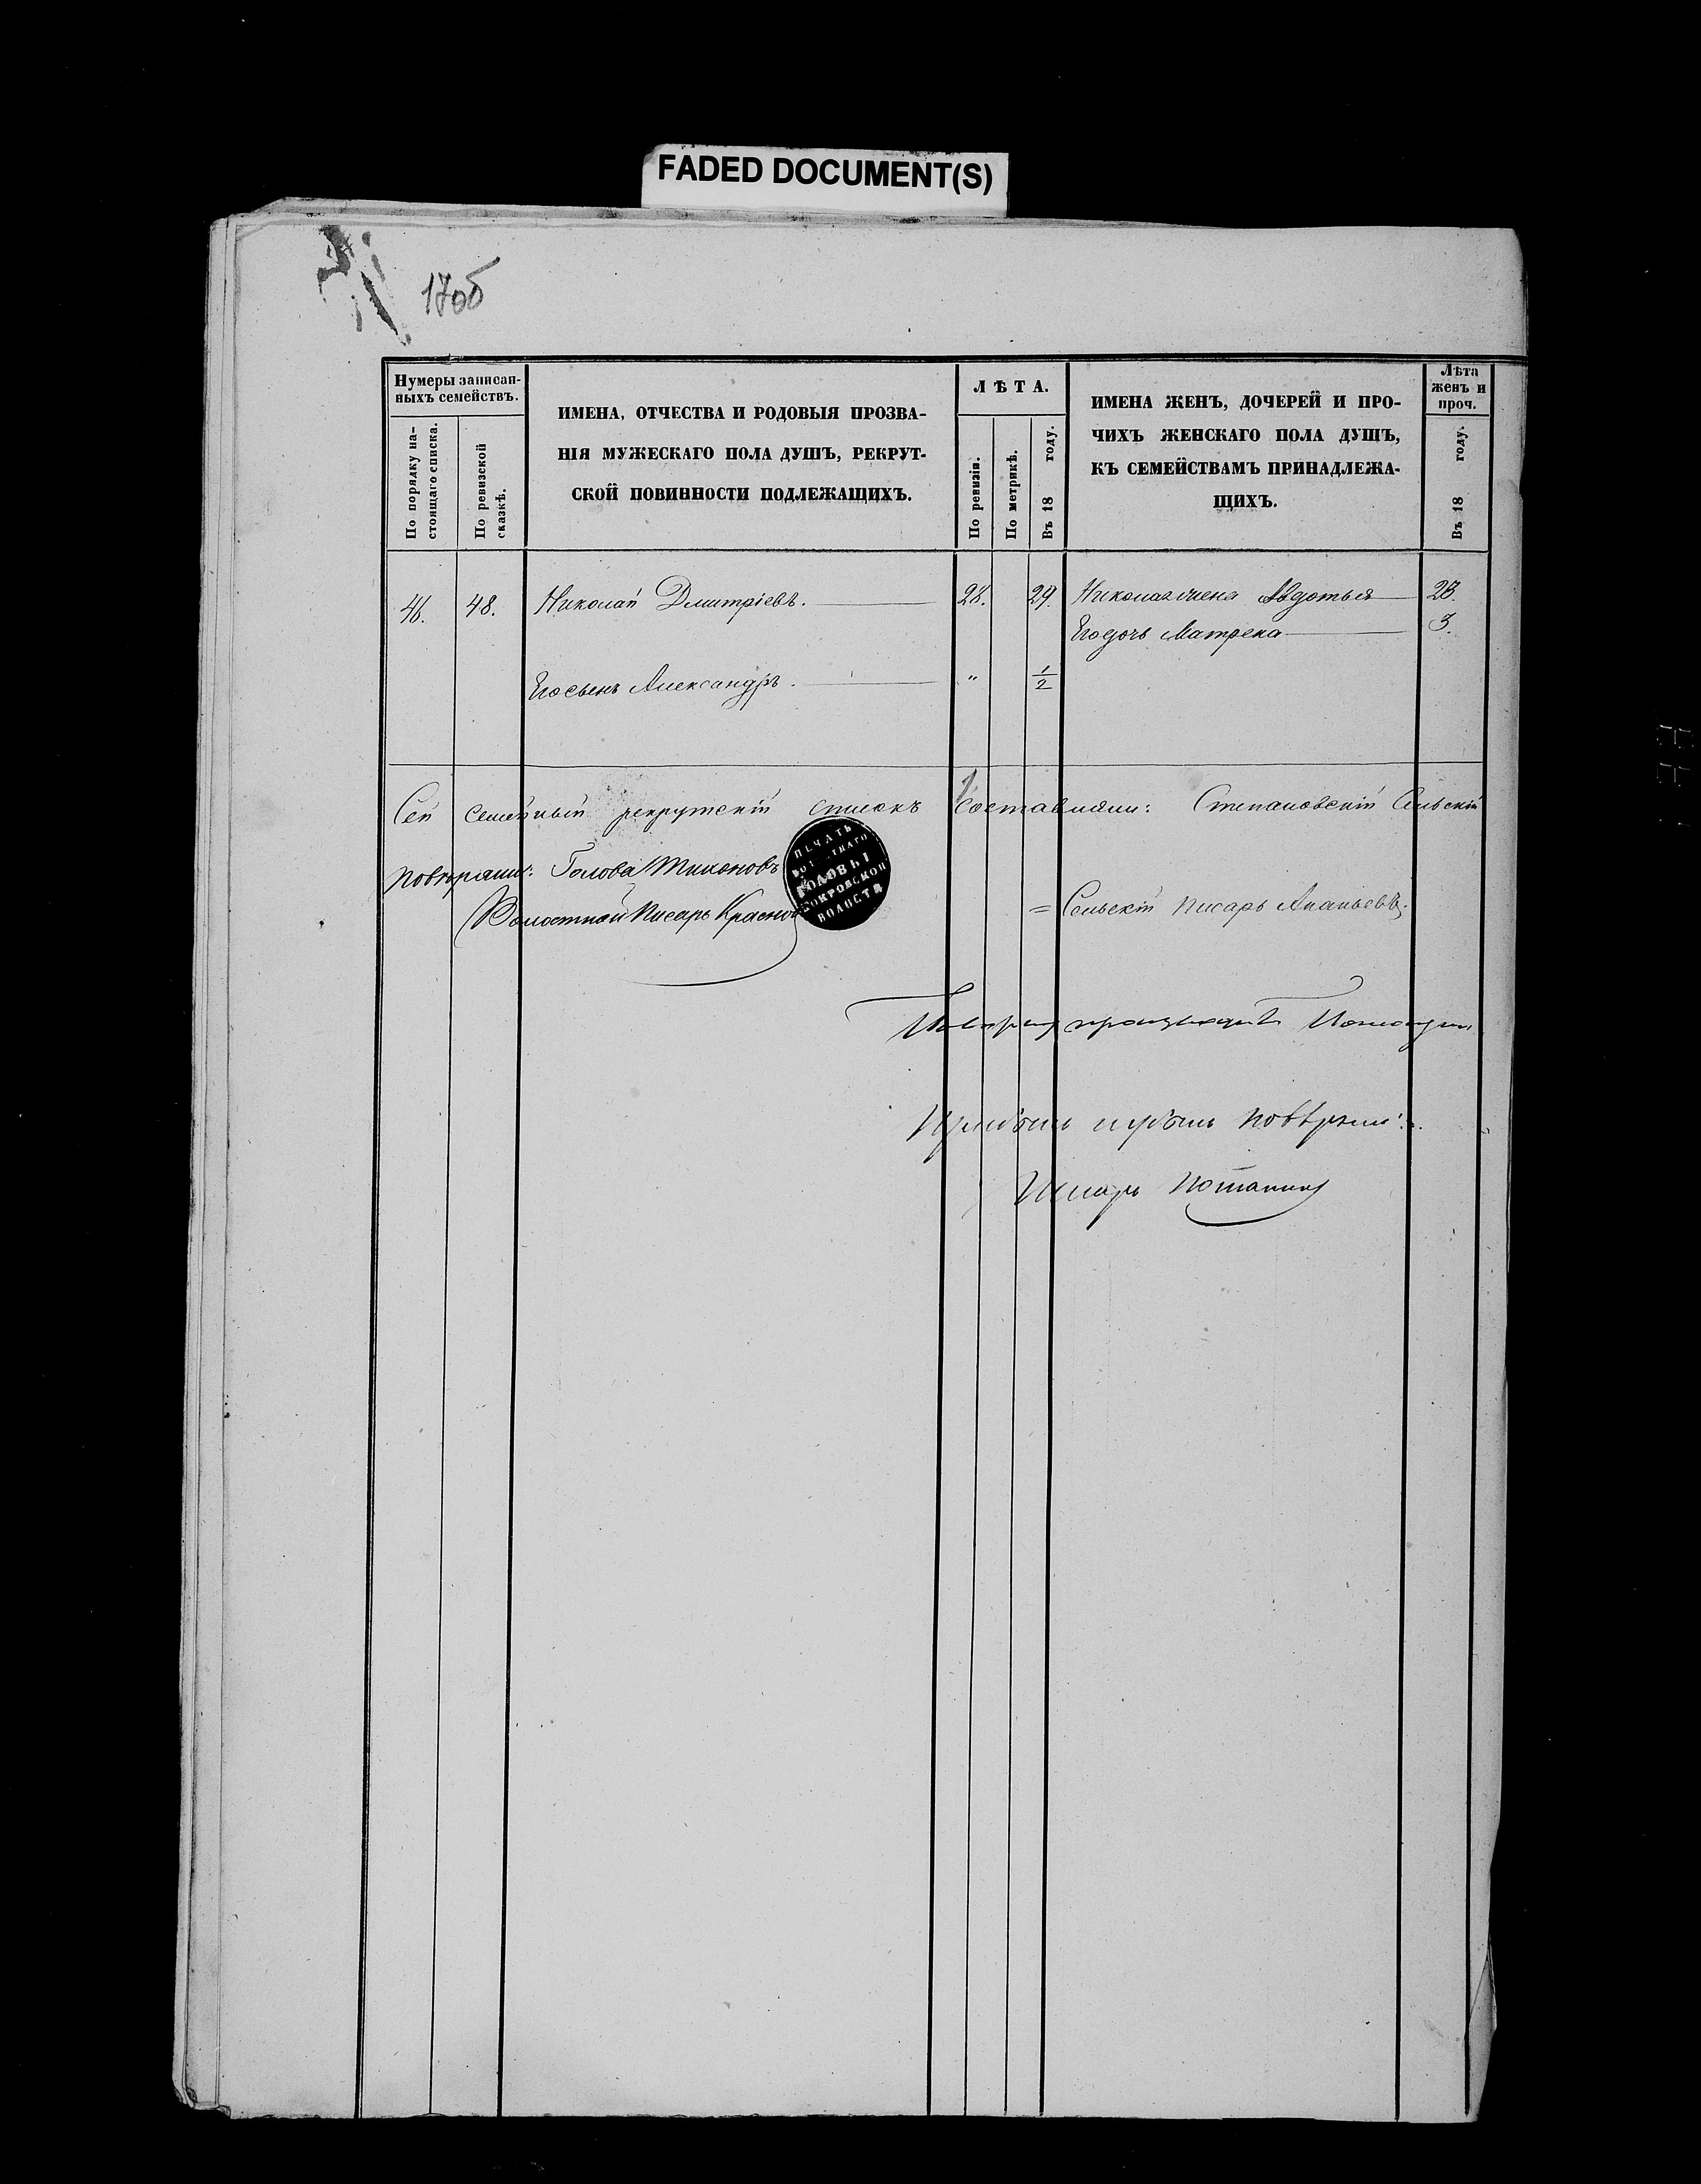 FADED DOCUMENT(S)
170б
Нумеры записан-
ныхъ семействъ.
По порядку на-
стоящаго списка.
По ревизской
сказкѣ.
ИМЕНА, ОТЧЕСТВА И РОДОВЫЯ ПРОЗВА-
НІЯ МУЖЕСКАГО ПОЛА ДУШЪ, РЕКРУТ-
СКОЙ ПОВИННОСТИ ПОДЛЕЖАЩИХЪ.
ЛѢТА.
По ревизіи.
По метрикѣ.
Въ 18 году.
ИМЕНА ЖЕНЪ, ДОЧЕРЕЙ И ПРО-
ЧИХЪ ЖЕНСКАГО ПОЛА ДУШЪ,
КЪ СЕМЕЙСТВАМЪ ПРИНАДЛЕЖА-
ЩИХЪ.
Лѣта
женъ и
проч.
Въ 18 году.
46. 48. Николай Дмитріевъ. 28. 29. Николая жена Авдотья 25.
Его дочь Матрена 3.
Его сынъ Александръ. " 1/2
Сей семейный рекрутскій списокъ составляли: Степановскій Сельскій
повѣряли: Голова Тихоновъ
ПЕЧАТЬ
ГОЛОВЫ
ПОКРОВСКОЙ
ВОЛОСТИ
Волостной Писарь Красновъ
= Сельскій Писарь Ананьевъ.
повѣрялъ:
Писарь Потанинъ